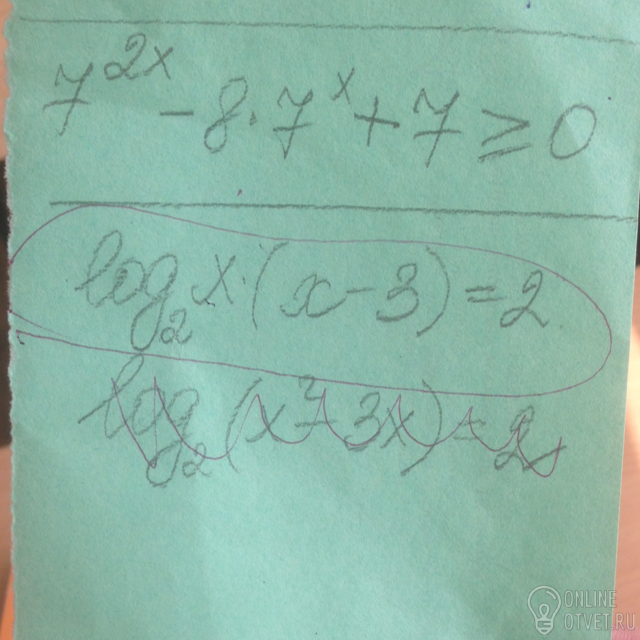 7^{2x} - 8 · 7^x + 7 ≥ 0
log_2 x · (x - 3) = 2
log_2 (x^2 - 3x) = 2
ONLINE
OTVET.RU